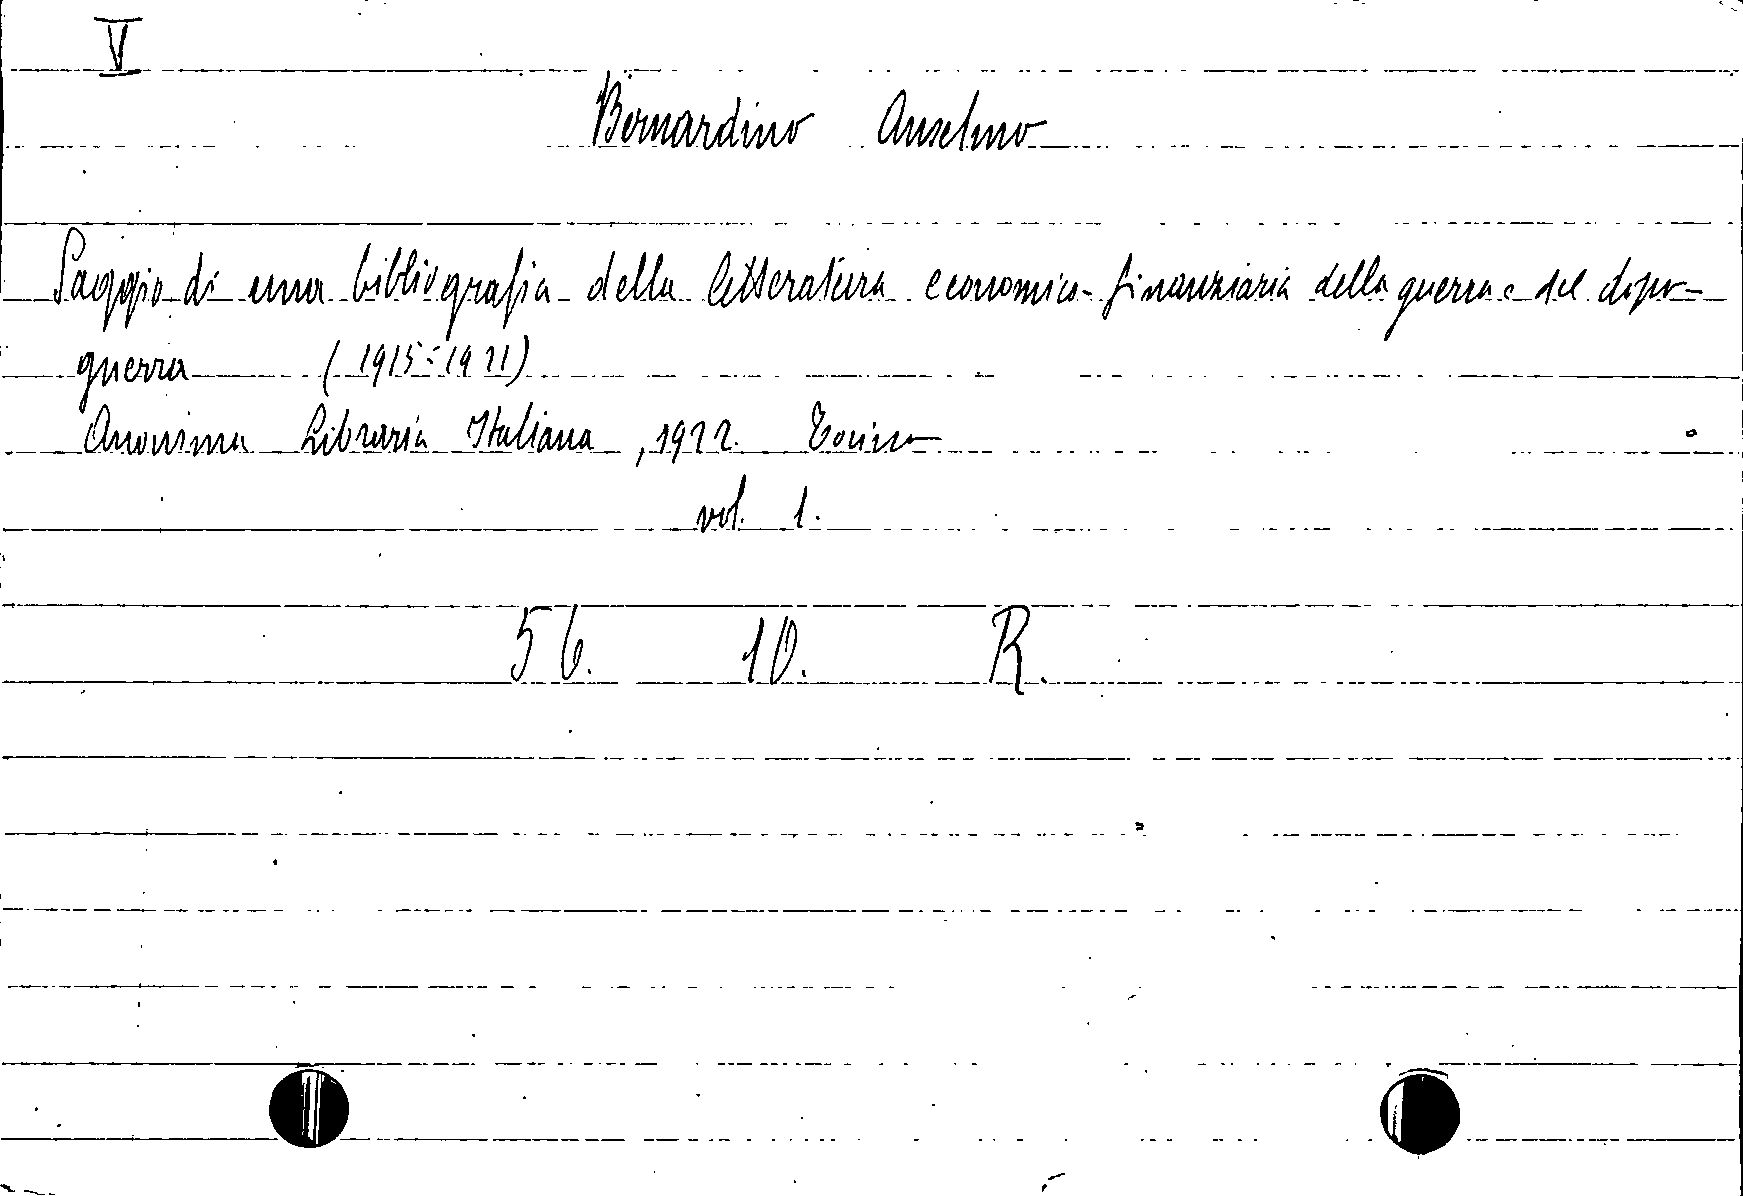 V
Bernardino Anselmo
Saggio di una bibliografia della letteratura economico-finanziaria della guerra e del dopo-
guerra (1915-1921)
Anonima Libraria Italiana, 1922. Torino
vol. 1.
56. 10. R.